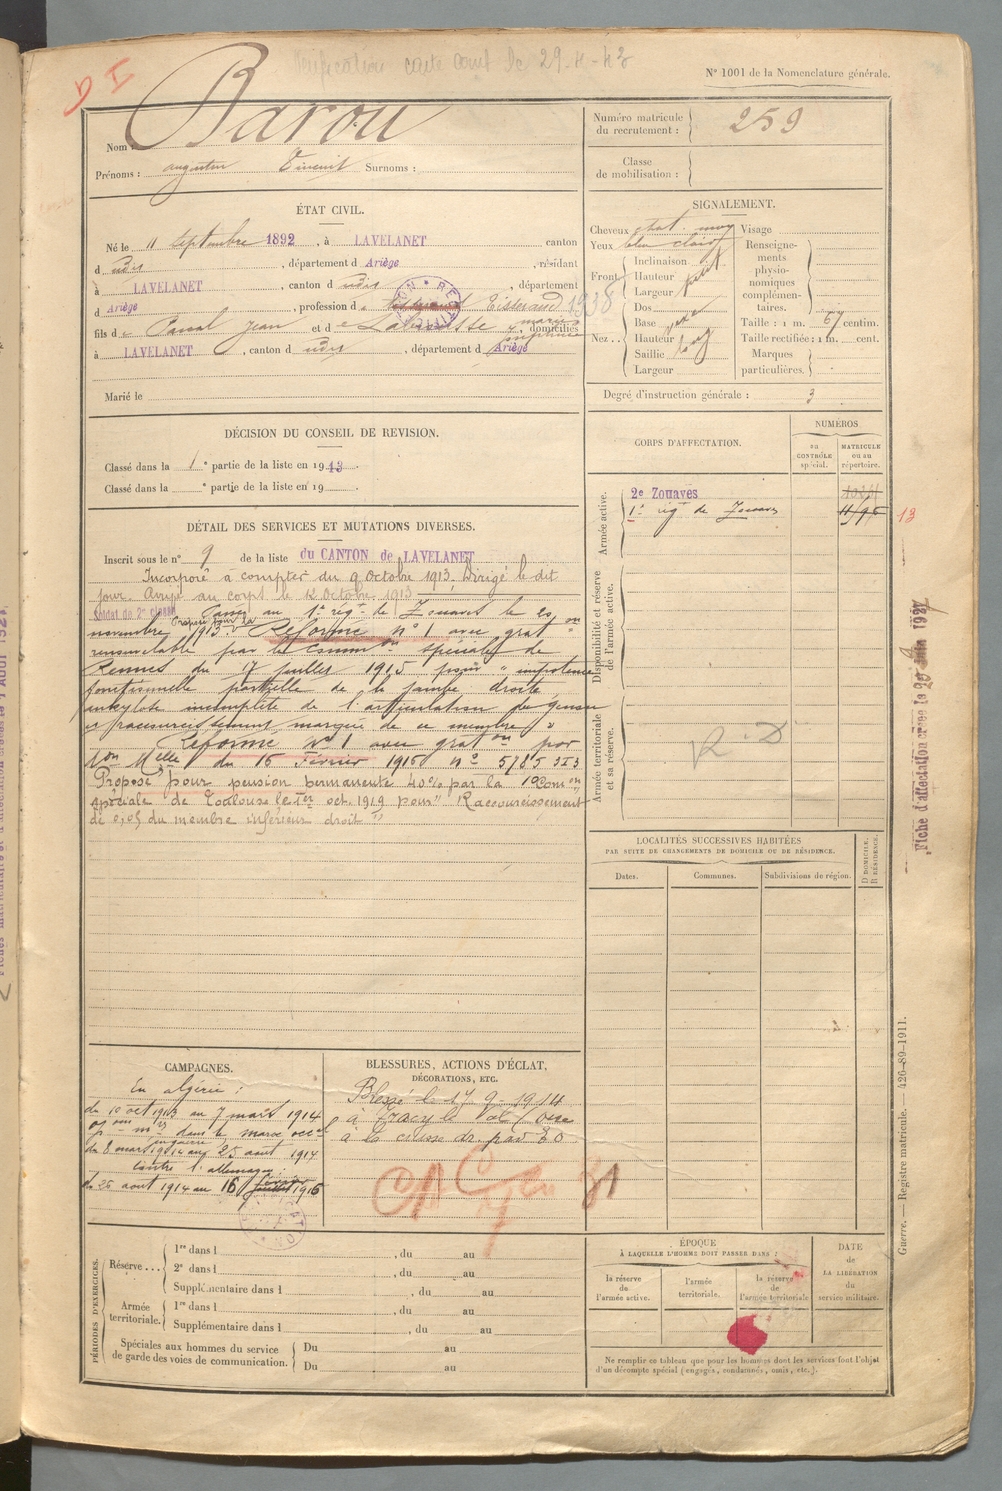 Vérification carte 29-4-43
N° 1001 de la Nomenclature générale.
D I
Nom : Barou
Prénoms : Augustin Vincent Surnoms :
Numéro matricule du recrutement : 259
Classe de mobilisation :
ÉTAT CIVIL.
Né le 11 Septembre 1892, à LAVELANET canton
d udit, département d Ariège, résidant
à LAVELANET, canton d udit, département
d Ariège, profession de Tisserand 1938
fils de Pascal Jean et de marie domiciliés
à LAVELANET, canton d udit, département d Ariège
Marié le
SIGNALEMENT.
Cheveux chat. moy
Yeux bleu clair
Front Inclinaison
Hauteur petit
Largeur
Nez Dos
Base vexe
Hauteur
Saillie long
Largeur
Visage
Renseignements physionomiques complémentaires.
Taille : 1 m. 67 centim.
Taille rectifiée : 1 m. cent.
Marques particulières.
Degré d'instruction générale : 3
DÉCISION DU CONSEIL DE REVISION.
Classé dans la 1e partie de la liste en 1913.
Classé dans la e partie de la liste en 19
CORPS D'AFFECTATION.
NUMÉROS
au CONTRÔLE spécial.
MATRICULE ou au répertoire.
Armée active.
2e Zouaves
1er rég de Zouaves 11/95 13
Disponibilité et réserve de l'armée active.
Armée territoriale et sa réserve.
R. D
DÉTAIL DES SERVICES ET MUTATIONS DIVERSES.
Inscrit sous le n° 9 de la liste du CANTON de LAVELANET
Incorporé à compter du 9 Octobre 1913. Dirigé le dit
jour. Arrivé au corps le 12 Octobre 1913
Soldat de 2e classe Passé au 1er régt de Zouaves le 20
novembre 1913. Proposé pour la Réforme n° 1 avec graton
renouvelable par la Common spéciale de
Rennes du 17 juillet 1915 pour "impotence
fonctionnelle partielle de la jambe droite,
ankylose incomplète de l'articulation du genou
et raccourcissement marqué de ce membre"
Réformé N° 1 avec graton par
don Melle du 16 Février 1916 n° 5785 3I3
Proposé pour pension permanente 40% par la 1e Comon
spéciale de Toulouse le 1er oct. 1919 pour "Raccourcissement
de 0,05 du membre inférieur droit"
LOCALITÉS SUCCESSIVES HABITÉES
PAR SUITE DE CHANGEMENTS DE DOMICILE OU DE RÉSIDENCE.
Dates.
Communes.
Subdivisions de région.
D DOMICILE.
R RÉSIDENCE.
Fiche d'affectation créée le juin 1937
CAMPAGNES.
En algérie :
du 10 oct 1913 au 7 mars 1914
opons mres dans le maroc occal
en guerre
du 8 mars 1914 au 25 aout 1914
Contre l'allemagne :
du 26 aout 1914 au 16 février 1916
BLESSURES, ACTIONS D'ÉCLAT,
DÉCORATIONS, ETC.
Blessé le 17-9-1914
à Tracy le Val / Oise
à la cuisse dr. par EO
PÉRIODES D'EXERCICES.
Réserve... 1re dans l, du au
2e dans l, du au
Supplémentaire dans l, du au
Armée territoriale. 1re dans l, du au
Supplémentaire dans l, du au
Spéciales aux hommes du service de garde des voies de communication. Du au
Du au
ÉPOQUE
À LAQUELLE L'HOMME DOIT PASSER DANS :
la réserve de l'armée active.
l'armée territoriale.
la réserve de l'armée territoriale
DATE de LA LIBÉRATION du service militaire.
Ne remplir ce tableau que pour les hommes dont les services font l'objet
d'un décompte spécial (engagés, condamnés, omis, etc.).
Guerre. — Registre matricule. — 426-89-1911.